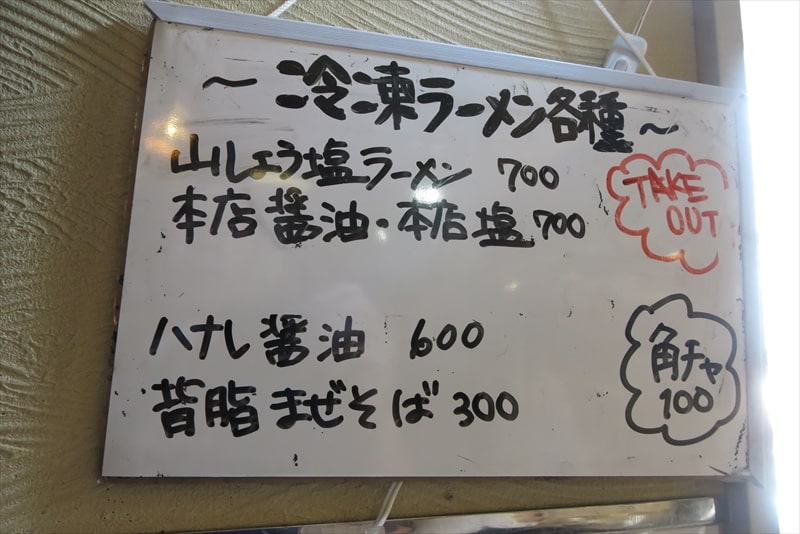 ～冷凍ラーメン各種～
山しょう塩ラーメン 700
本店醤油・本店塩 700
TAKE
OUT
ハナレ醤油 600
背脂まぜそば 300
角チャ
100